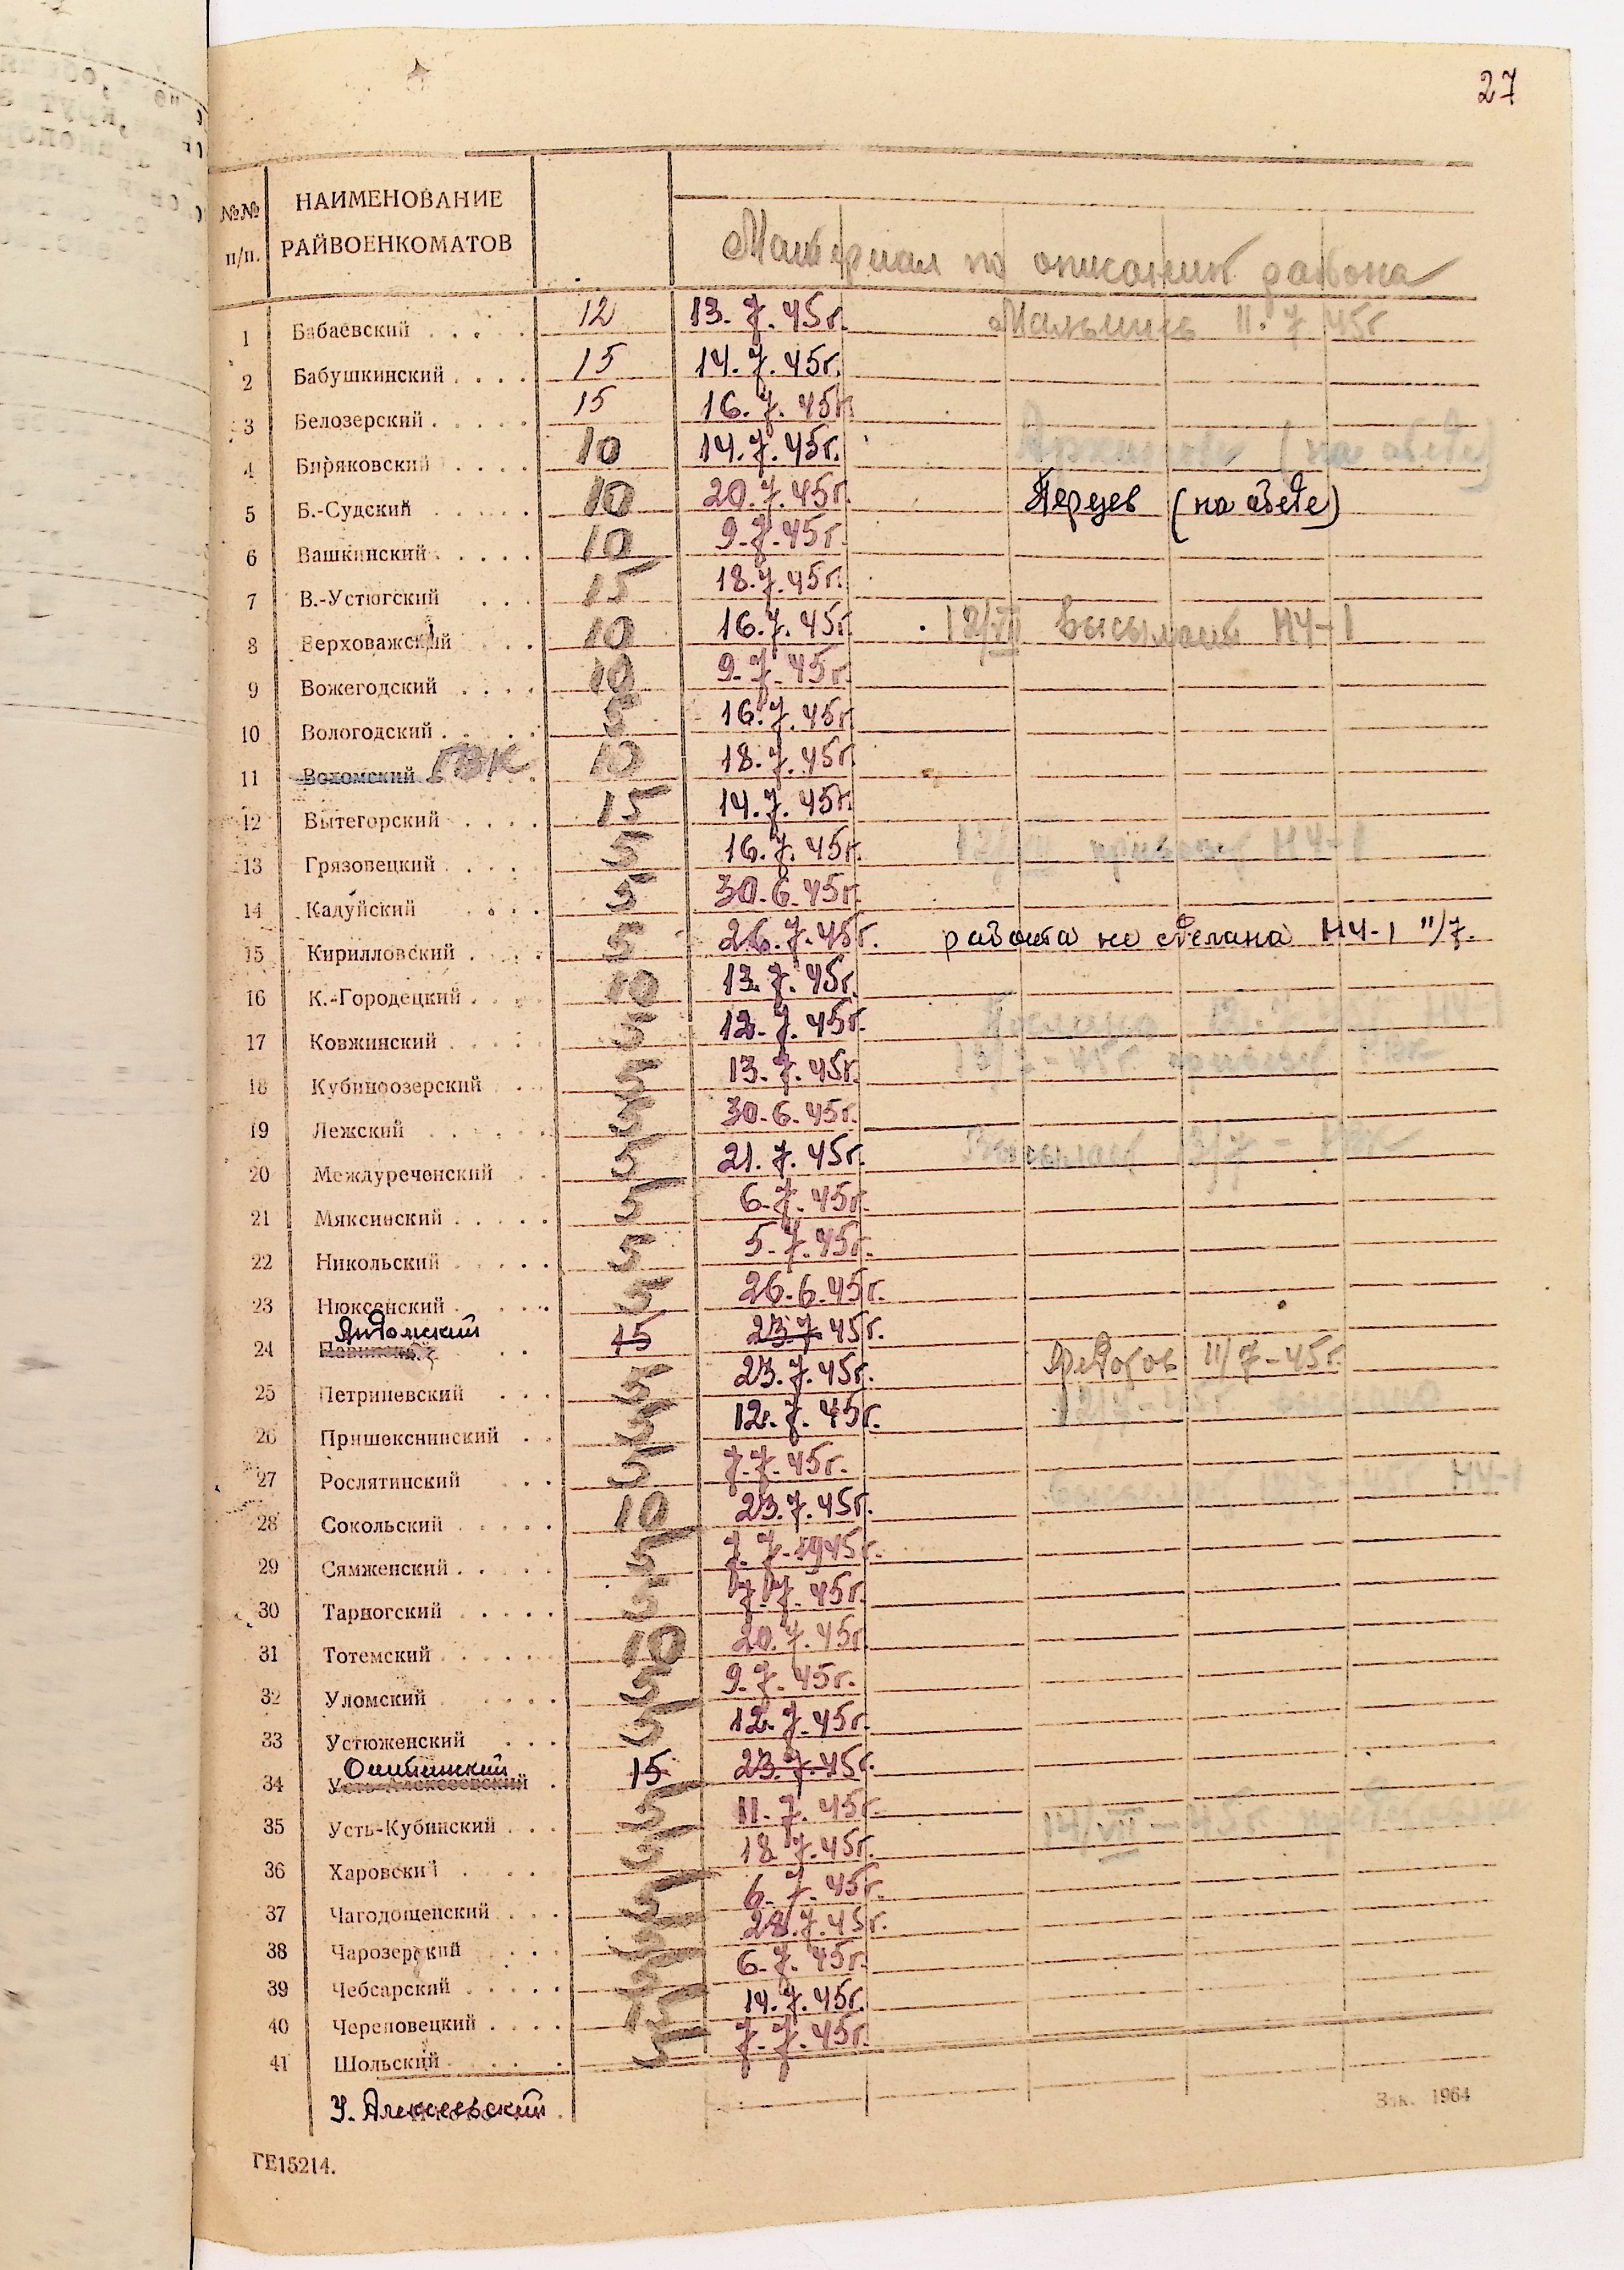 27
№№ п/п. НАИМЕНОВАНИЕ РАЙВОЕНКОМАТОВ Материал по описанию района
1 Бабаевский 12 13.7.45г. 11.7.45г
2 Бабушкинский 15 14.7.45г.
3 Белозерский 15 16.7.45г.
4 Биряковский 10 14.7.45г. (на обеде)
5 Б.-Судский 10 20.7.45г. Перцев (на обеде)
6 Вашкинский 10 9.7.45г.
7 В.-Устюгский 15 18.7.45г.
8 Верховажский 10 16.7.45г. 12/VII высылают НЧ-1
9 Вожегодский 10 9.7.45г.
10 Вологодский 5 16.7.45г.
11 Вохомский ГВК 10 18.7.45г.
12 Вытегорский 15 14.7.45г.
13 Грязовецкий 5 16.7.45г. 12/VII привезут НЧ-1
14 Кадуйский 5 30.6.45г.
15 Кирилловский 5 26.7.45г. работа не сделана НЧ-1 11/7.
16 К.-Городецкий 10 13.7.45г.
17 Ковжинский 5 12.7.45г. НЧ-1
18 Кубиноозерский 5 13.7.45г.
19 Лежский 5 30.6.45г.
20 Междуреченский 5 21.7.45г. Высылают 13/7
21 Мяксинский 5 6.7.45г.
22 Никольский 5 5.7.45г.
23 Нюксенский 5 26.6.45г.
Андомский
24 Павинский 15 23.7.45г.
25 Петриневский 5 23.7.45г. Федотов 11/7-45г.
26 Пришекснинский 5 12.7.45г. 12/7-45г
27 Рослятинский 5 7.7.45г.
28 Сокольский 10 23.7.45г. НЧ-1
29 Сямженский 5 7.7.1945г.
30 Тарногский 5 7.7.45г.
31 Тотемский 10 20.7.45г.
32 Уломский 5 9.7.45г.
33 Устюженский 5 12.7.45г.
Оштинский
34 Усть-Алексеевский 15 23.7.45г.
35 Усть-Кубинский 5 11.7.45г. 14/VII-45г
36 Харовский 5 18.7.45г.
37 Чагодощенский 5 6.7.45г.
38 Чарозерский 5 28.7.45г.
39 Чебсарский 5 6.7.45г.
40 Череповецкий 15 14.7.45г.
41 Шольский 5 7.7.45г.
У. Алексеевский
Зак. 1964
ГЕ15214.